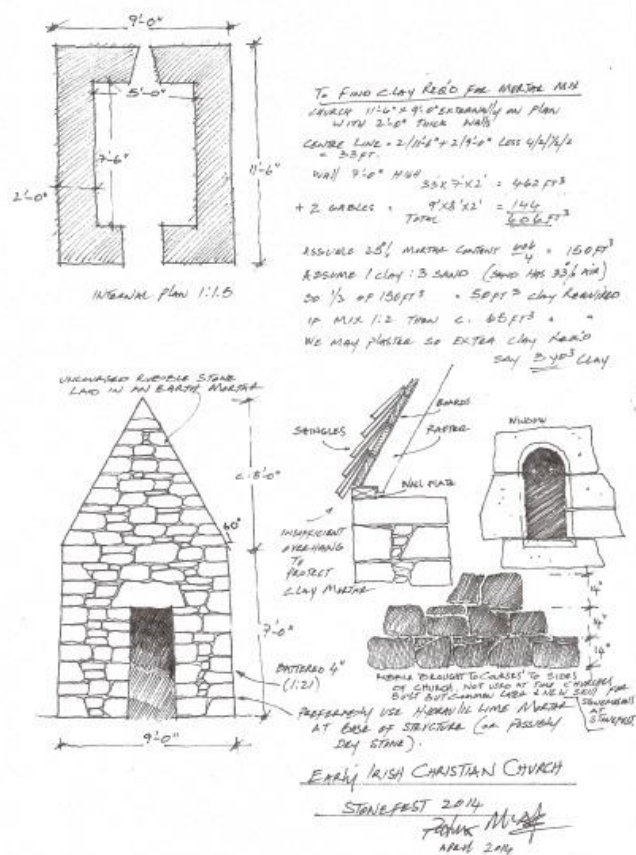 9'-0"
5'-0"
7'-6"
2'-0"
11'-6"
INTERNAL PLAN 1:1.5
TO FIND CLAY REQ'D FOR MORTAR MIX
CHURCH 11'-6" X 9'-0" EXTERNALLY ON PLAN
WITH 2'-0" THICK WALLS
CENTRE LINE = 2/11'-6" + 2/9'-0" LESS 4/2/
= 33 FT.
WALL 7'-0" HIGH
33' X 7' X 2' = 462 FT³
+ 2 GABLES = 9' X 8' X 2' = 144
TOTAL 606 FT³
ASSUME 25% MORTAR CONTENT 606/4 = 150 FT³
ASSUME 1 CLAY : 3 SAND (SAND HAS 33% AIR)
SO 1/3 OF 150 FT³ = 50 FT³ CLAY REQUIRED
IF MIX 1:2 THEN C. 65 FT³ " "
WE MAY PLASTER SO EXTRA CLAY REQ'D
SAY 3 YD³ CLAY
UNCOURSED RUBBLE STONE
LAID IN AN EARTH MORTAR
C. 8'-0"
60°
7'-0"
BATTERED 4"
(1:21)
9'-0"
SHINGLES
BOARDS
RAFTER
WALL PLATE
INSUFFICIENT
OVERHANG
TO
PROTECT
CLAY MORTAR
WINDOW
14"
14"
14"
RUBBLE BROUGHT TO COURSES TO SIDES
OF CHURCH. NOT USED AT CHURCHES
BUT COMMON LATER & NEW SKILL FOR
STONEMASONS
AT
STONEFEST.
PREFERABLY USE HYDRAULIC LIME MORTAR
AT BASE OF STRUCTURE (OR POSSIBLY
DRY STONE).
EARLY IRISH CHRISTIAN CHURCH
STONEFEST 2014
APRIL 2014